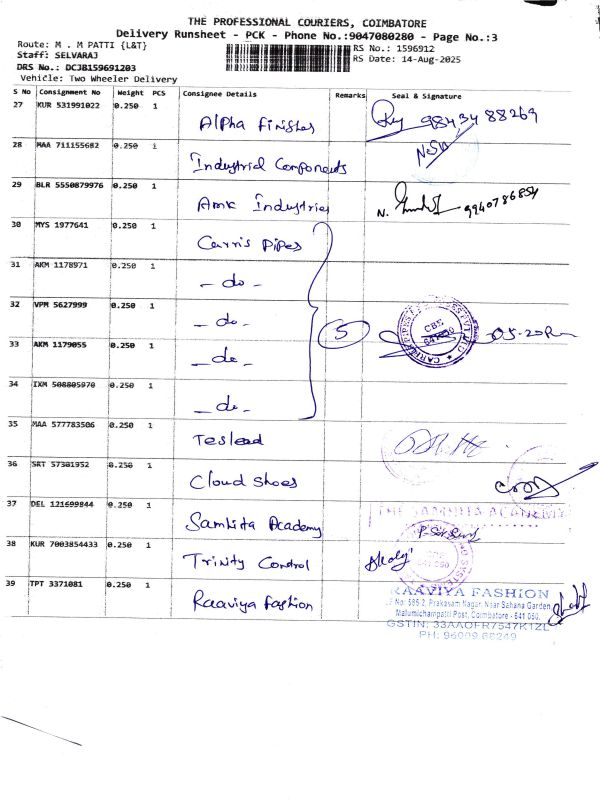 THE PROFESSIONAL COURIERS, COIMBATORE
Delivery Runsheet - PCK - Phone No.:9047080280 - Page No.:3
Route: M . M PATTI {L&T}
RS No.: 1596912
Staff: SELVARAJ
RS Date: 14-Aug-2025
DRS No.: DCJB159691203
Vehicle: Two Wheeler Delivery
S No Consignment No Weight PCS Consignee Details Remarks Seal & Signature
27 KUR 531991022 0.250 1 Alpha Finishes 98434 88269
28 MAA 711155682 0.250 1 Industrial Components
29 BLR 5550879976 0.250 1 Amk Industries N. 9940786854
30 MYS 1977641 0.250 1 Carris Pipes
31 AKM 1178971 0.250 1 - do -
32 VPM 5627999 0.250 1 - do -
33 AKM 1179055 0.250 1 - do - 5 CBE
34 IXM 508805970 0.250 1 - do -
35 MAA 577783506 0.250 1 Teslead
36 SRT 57301952 0.250 1 Cloud Shoes
37 DEL 121699844 0.250 1 Samhita Academy THE SAMHITA ACADEMY
38 KUR 7003854433 0.250 1 Trinity Control
39 TPT 3371081 0.250 1 Raaviya Fashion
RAAVIYA FASHION
Prakasam Nagar, Near Sahana Garden,
Malumichampatti Post, Coimbatore - 641 050.
GSTIN: 33AAOFR7547K1ZL
PH: 96009 68249